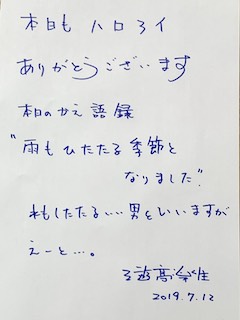 本日も ハロネイ
ありがとうございます
本日のかえ語録
"雨もひたたる季節と
なりました"。
水もしたたるいい男といいますが
えーと…。
三遊亭
2019.7.12